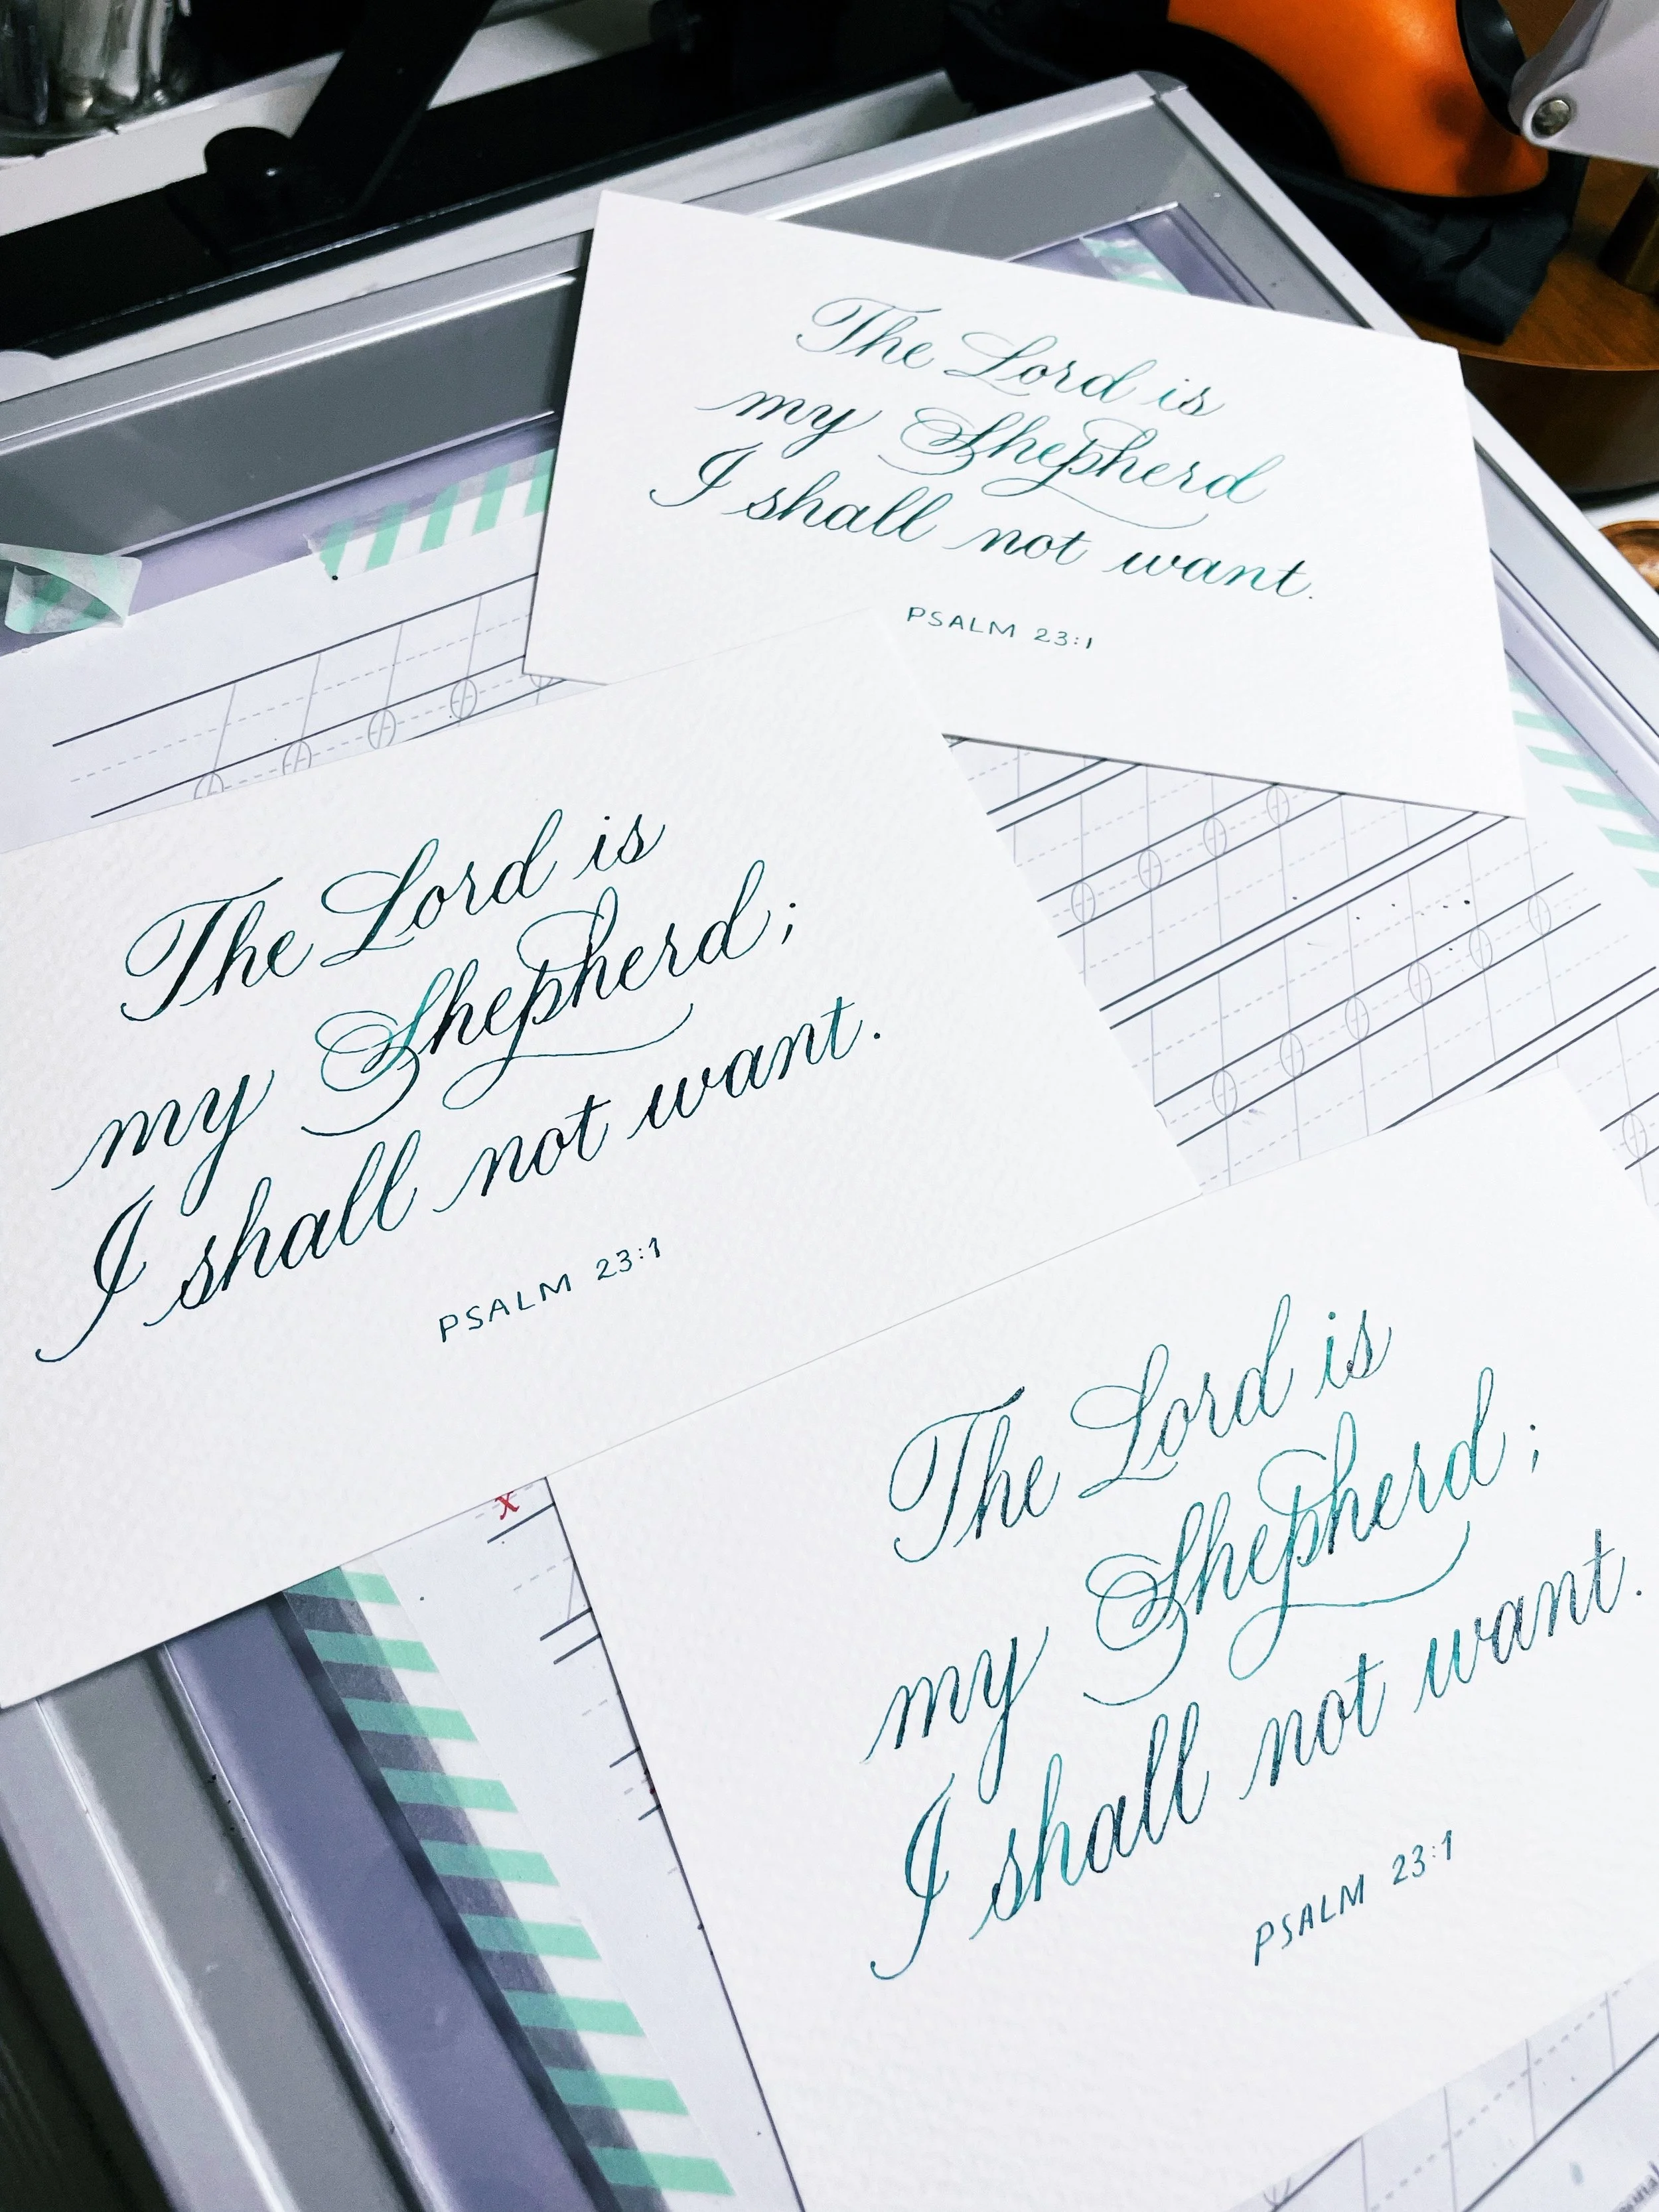 The Lord is
my Shepherd
I shall not want.
PSALM 23:1
The Lord is
my Shepherd;
I shall not want.
PSALM 23:1
x
The Lord is
my Shepherd;
I shall not want.
PSALM 23:1